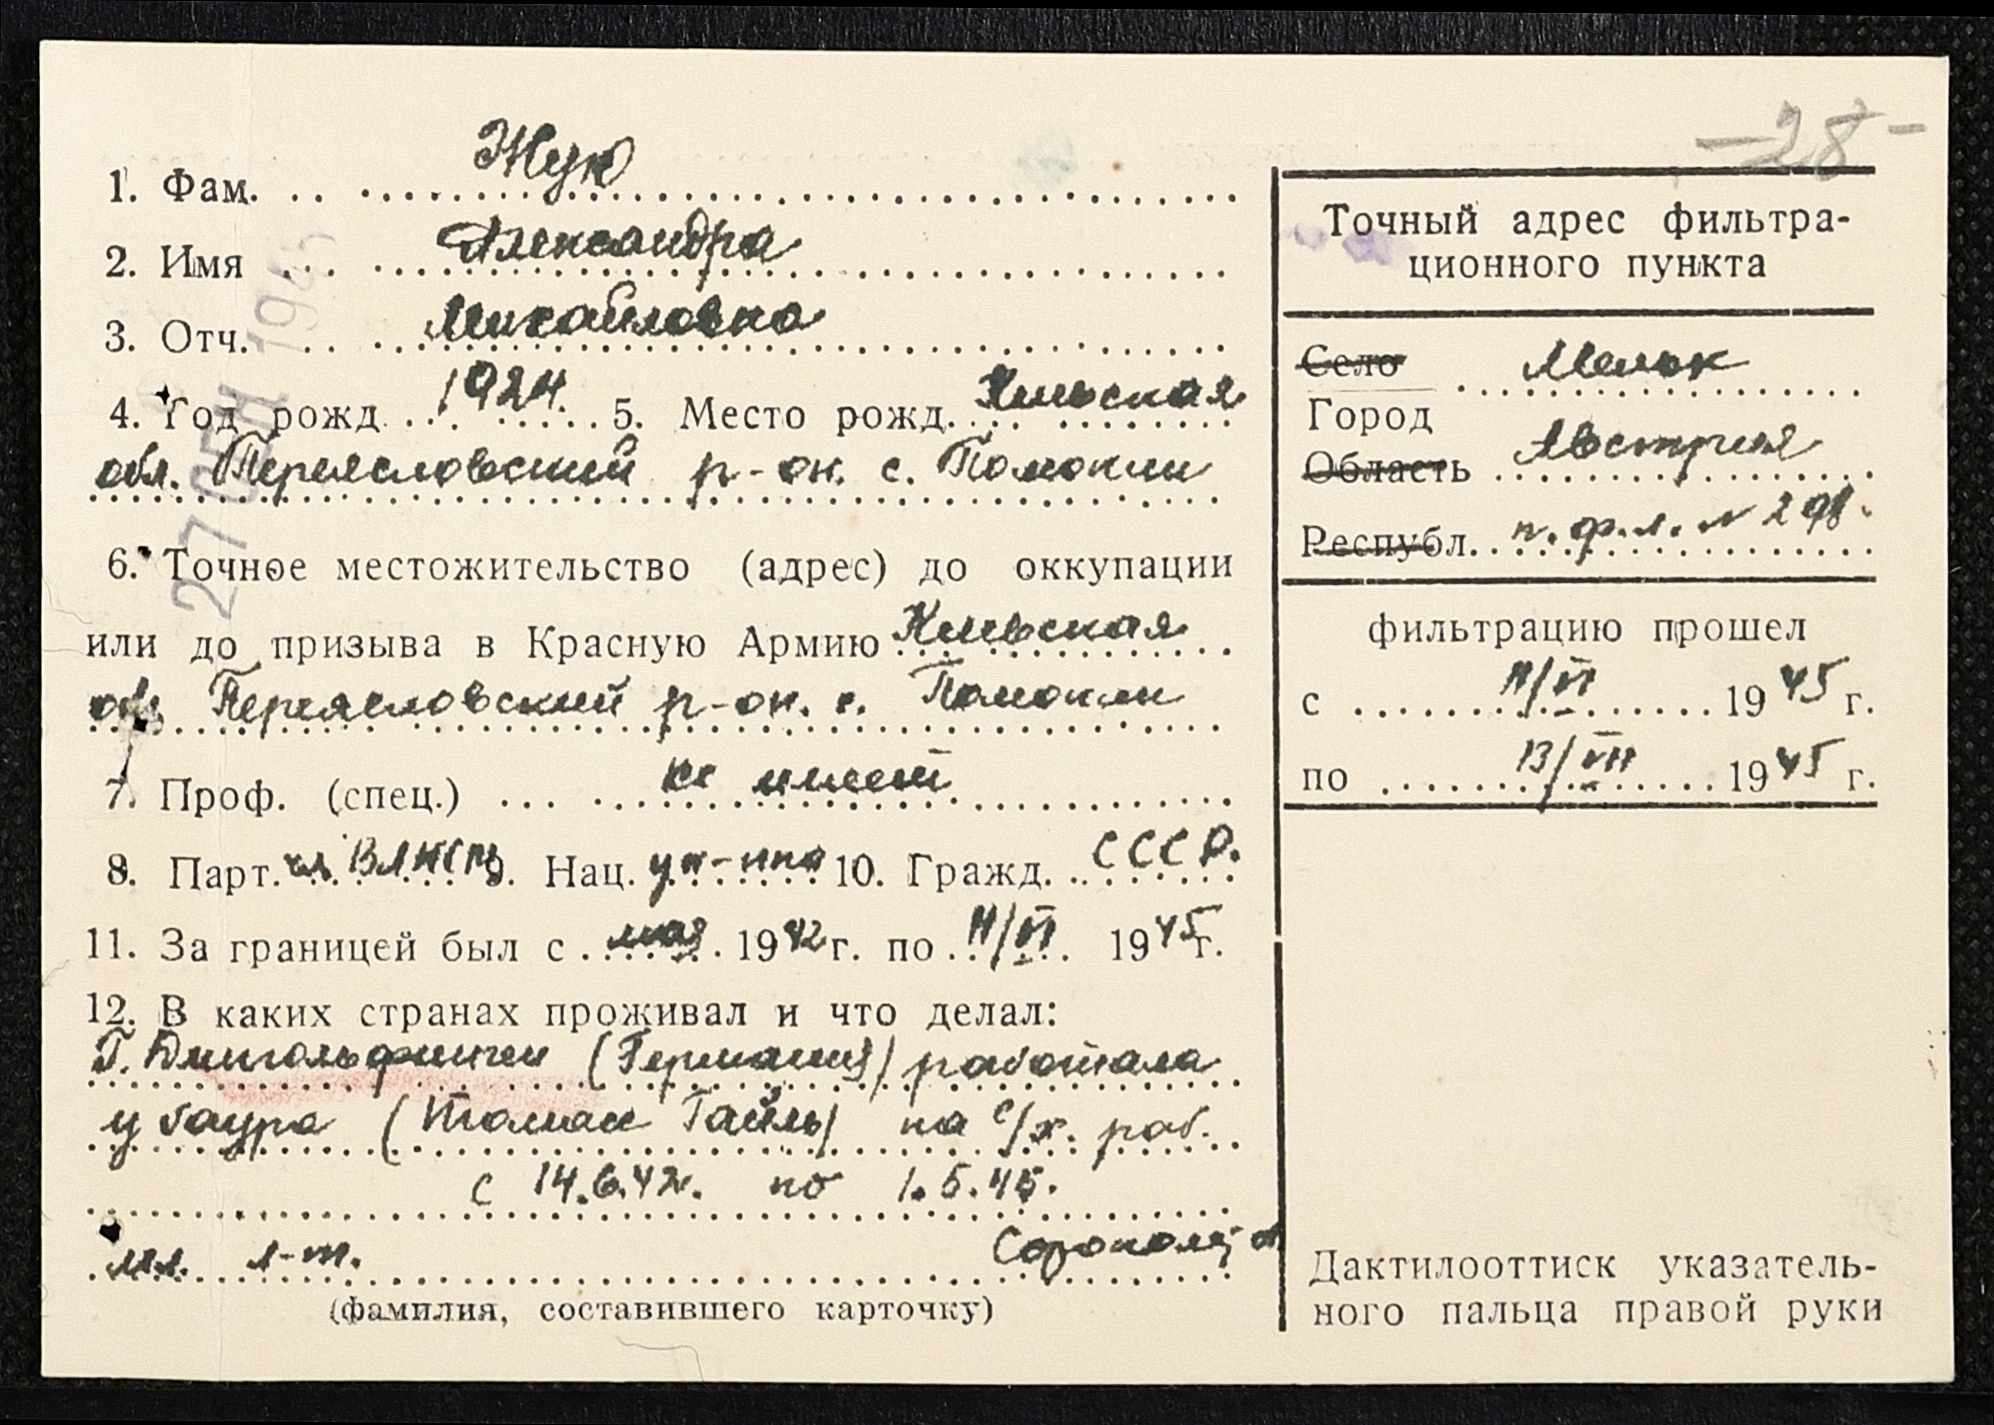 -28-
1. Фам. Жук
2. Имя Александра
3. Отч. Михайловна
4. Год рожд. 1924. 5. Место рожд. Киевская
обл. Переясловский р-он. с. Помокли
6. Точное местожительство (адрес) до оккупации
или до призыва в Красную Армию Киевская
обл. Переясловский р-он. с. Помокли
7. Проф. (спец.) не имеет
8. Парт. чл. ВЛКСМ 9. Нац. ук-нка 10. Гражд. СССР.
11. За границей был с мая 1942 г. по 11/VI 1945 г.
12. В каких странах проживал и что делал:
Г. Дингольфинген (Германия) работала
у баура (Томас Гайль) на с/х. раб.
с 14.6.42. по 1.5.45.
мл. л-т.
(фамилия, составившего карточку)
27 СЕН 1945
Точный адрес фильтра-
ционного пункта
Село Мельк
Город
Область Австрия
Республ. п.ф.л. N 298.
фильтрацию прошел
с 11/VI 1945 г.
по 13/VII 1945 г.
Дактилооттиск указатель-
ного пальца правой руки